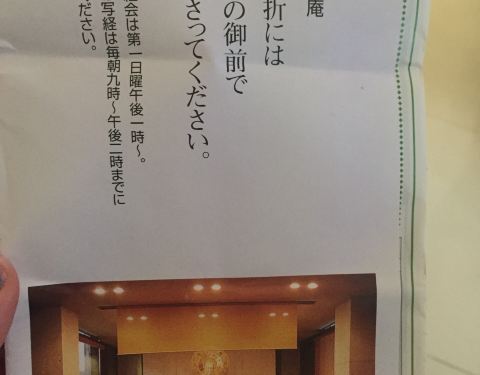 庵
折には
の御前で
さってください。
会は第一日曜午後一時～。
写経は毎朝九時～午後二時までに
ださい。